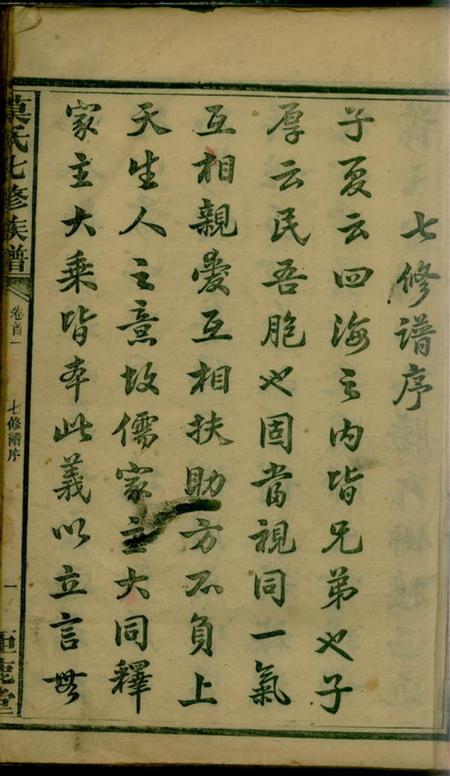 七修譜序
子夏云四海之內皆兄弟也子
厚云民吾胞也固當視同一氣
互相親愛互相扶助方不負上
天生人之意故儒家主大同釋
家主大乘皆本此義以立言無
氏七修族譜
卷首一
七修譜序
一
鹿堂